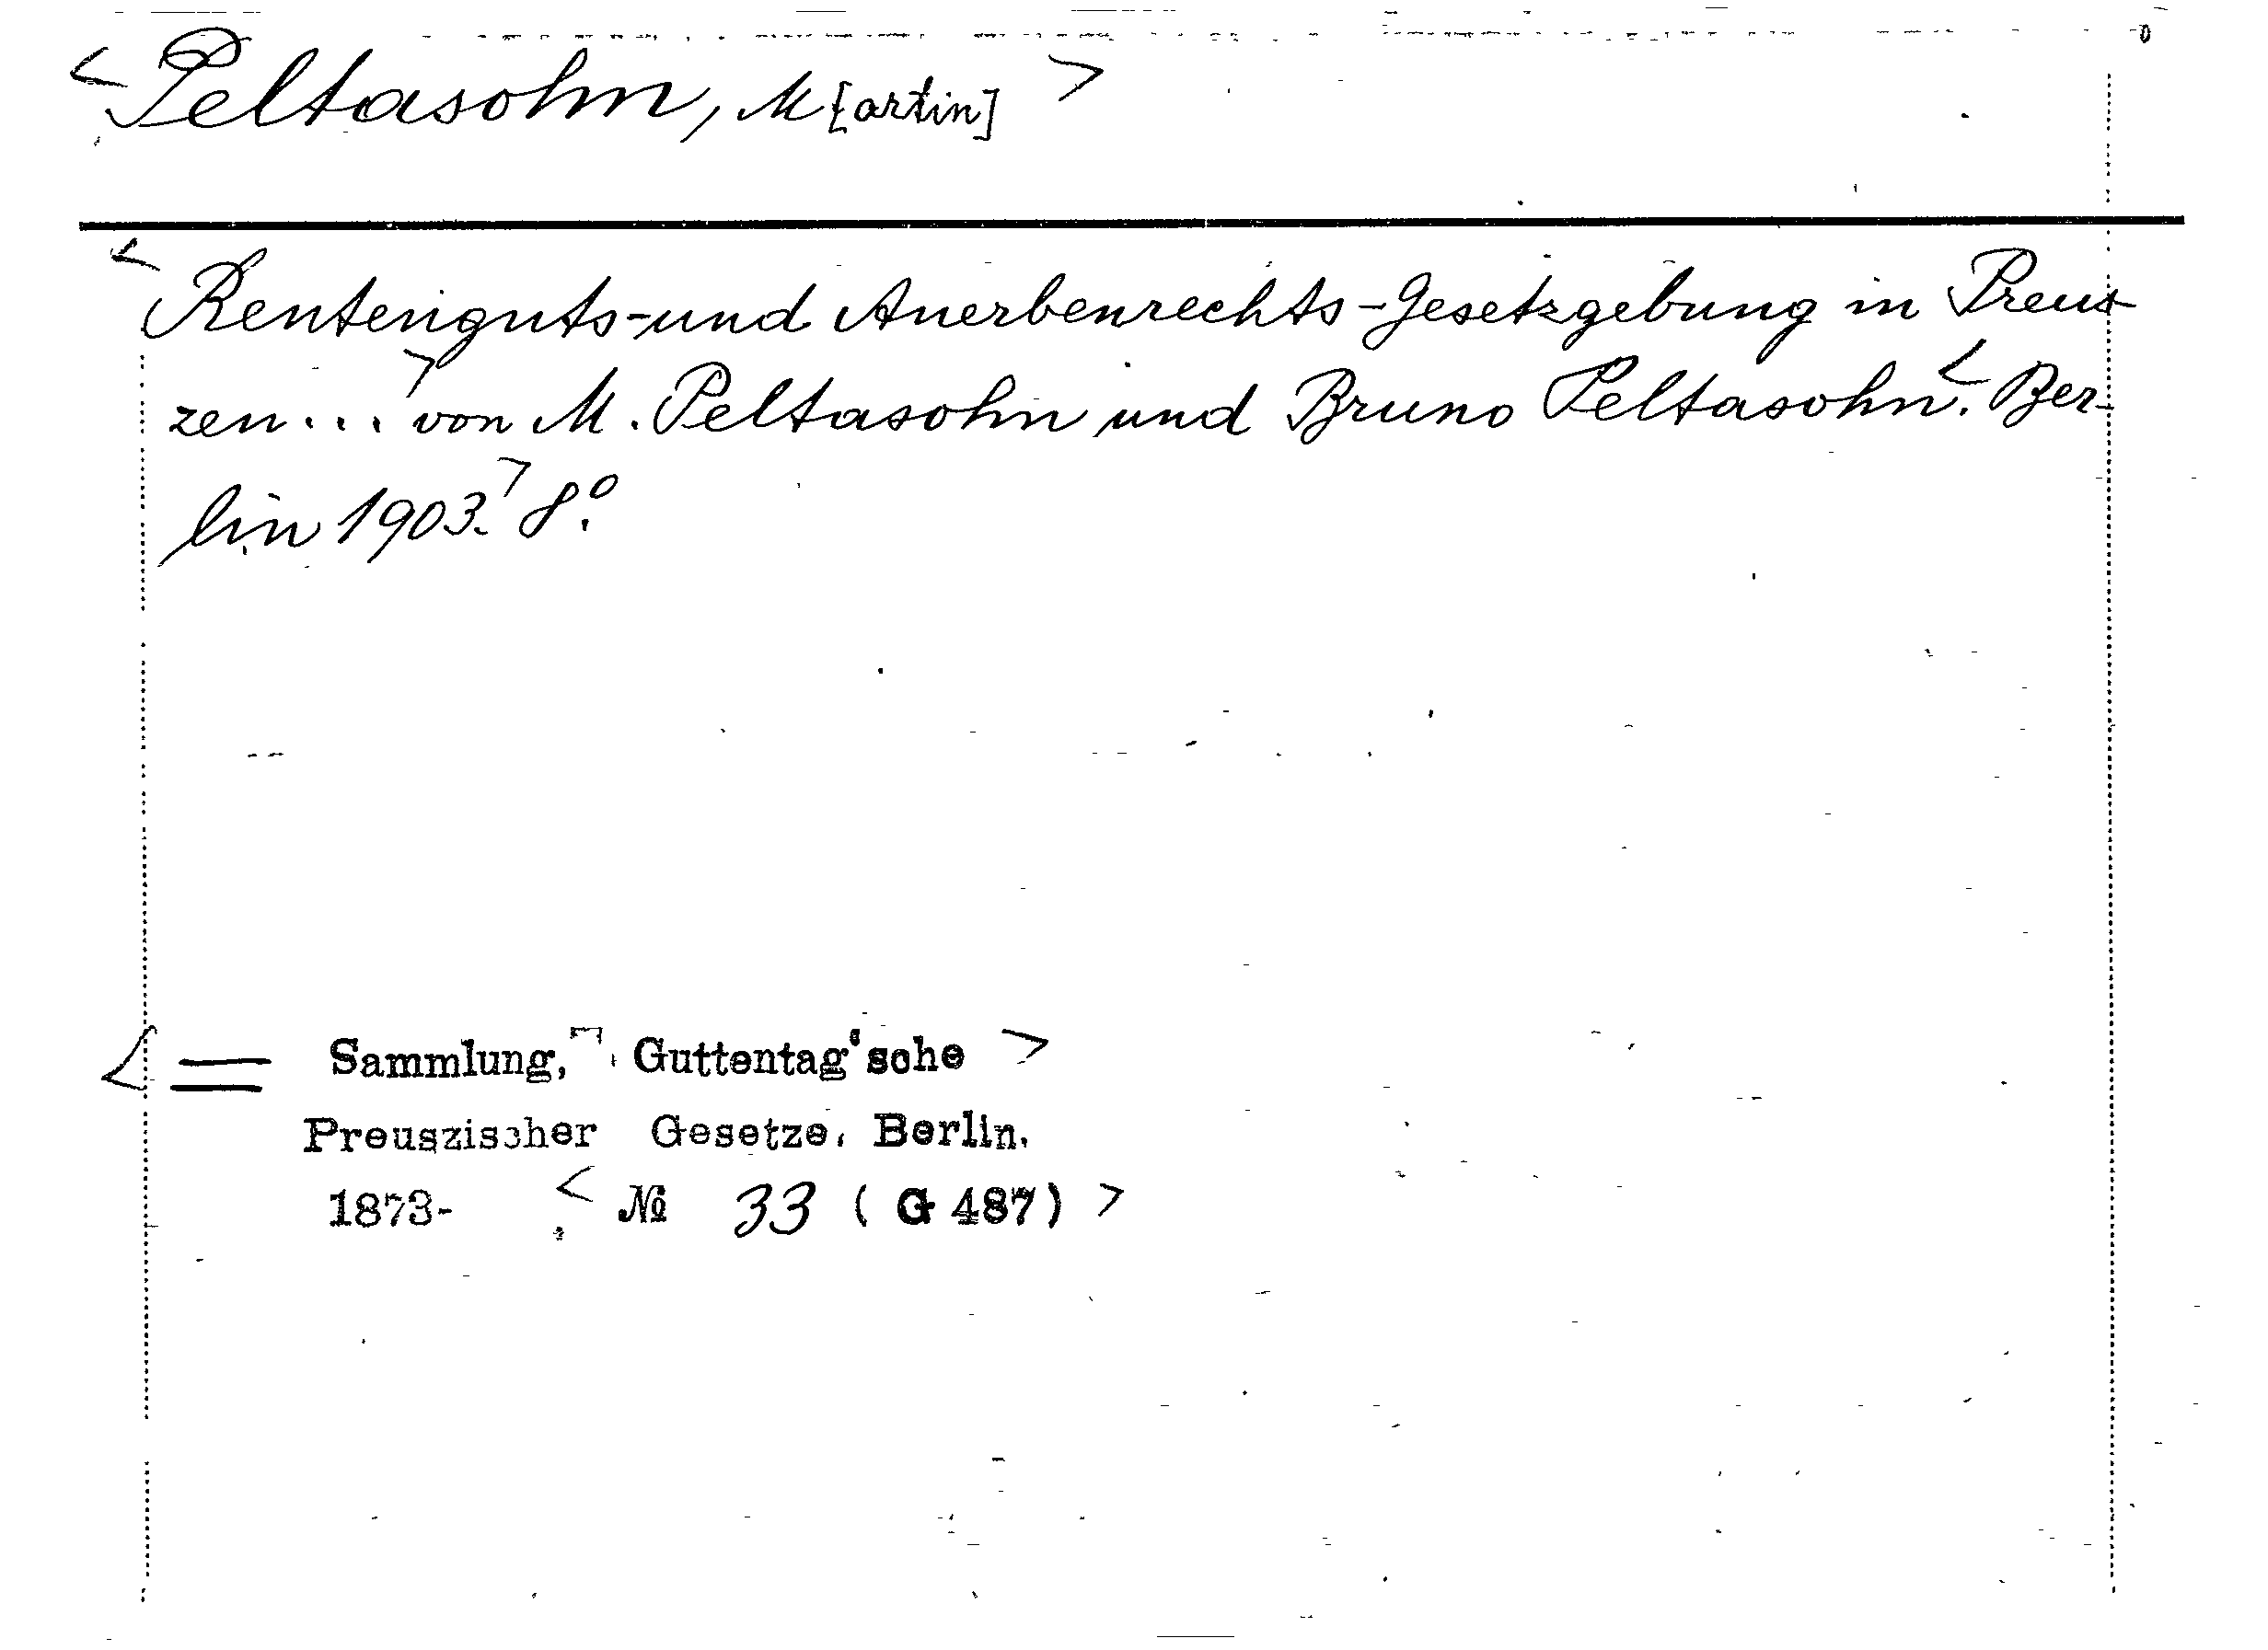 <Peltasohn, M[artin]>
<Rentenguts- und Anerbenrechts-Gesetzgebung in Preus-
zen...> von M. Peltasohn und Bruno Peltasohn.< Ber-
lin 1903.> 8º.
<= Sammlung, Guttentag'sche >
Preuszischer Gesetze. Berlin.
1873- < № 33 (G 487) >